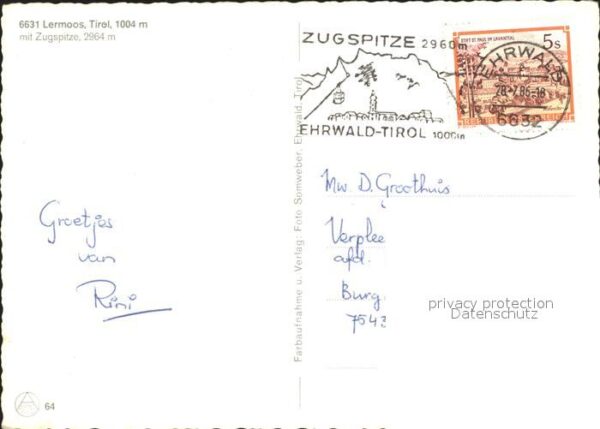 6631 Lermoos, Tirol, 1004 m
mit Zugspitze, 2964 m
ZUGSPITZE 2960m
EHRWALD-TIROL 1000m
STIFT ST. PAUL IM LAVANTTAL
5s
EHRWALD
28.-7.86-18
6632
Groetjes
van
Rini
Mw D. Groothuis
Verplee
afd.
Burg
7542
Farbaufnahme u. Verlag: Foto Somweber, Ehrwald, Tirol
privacy protection
Datenschutz
64